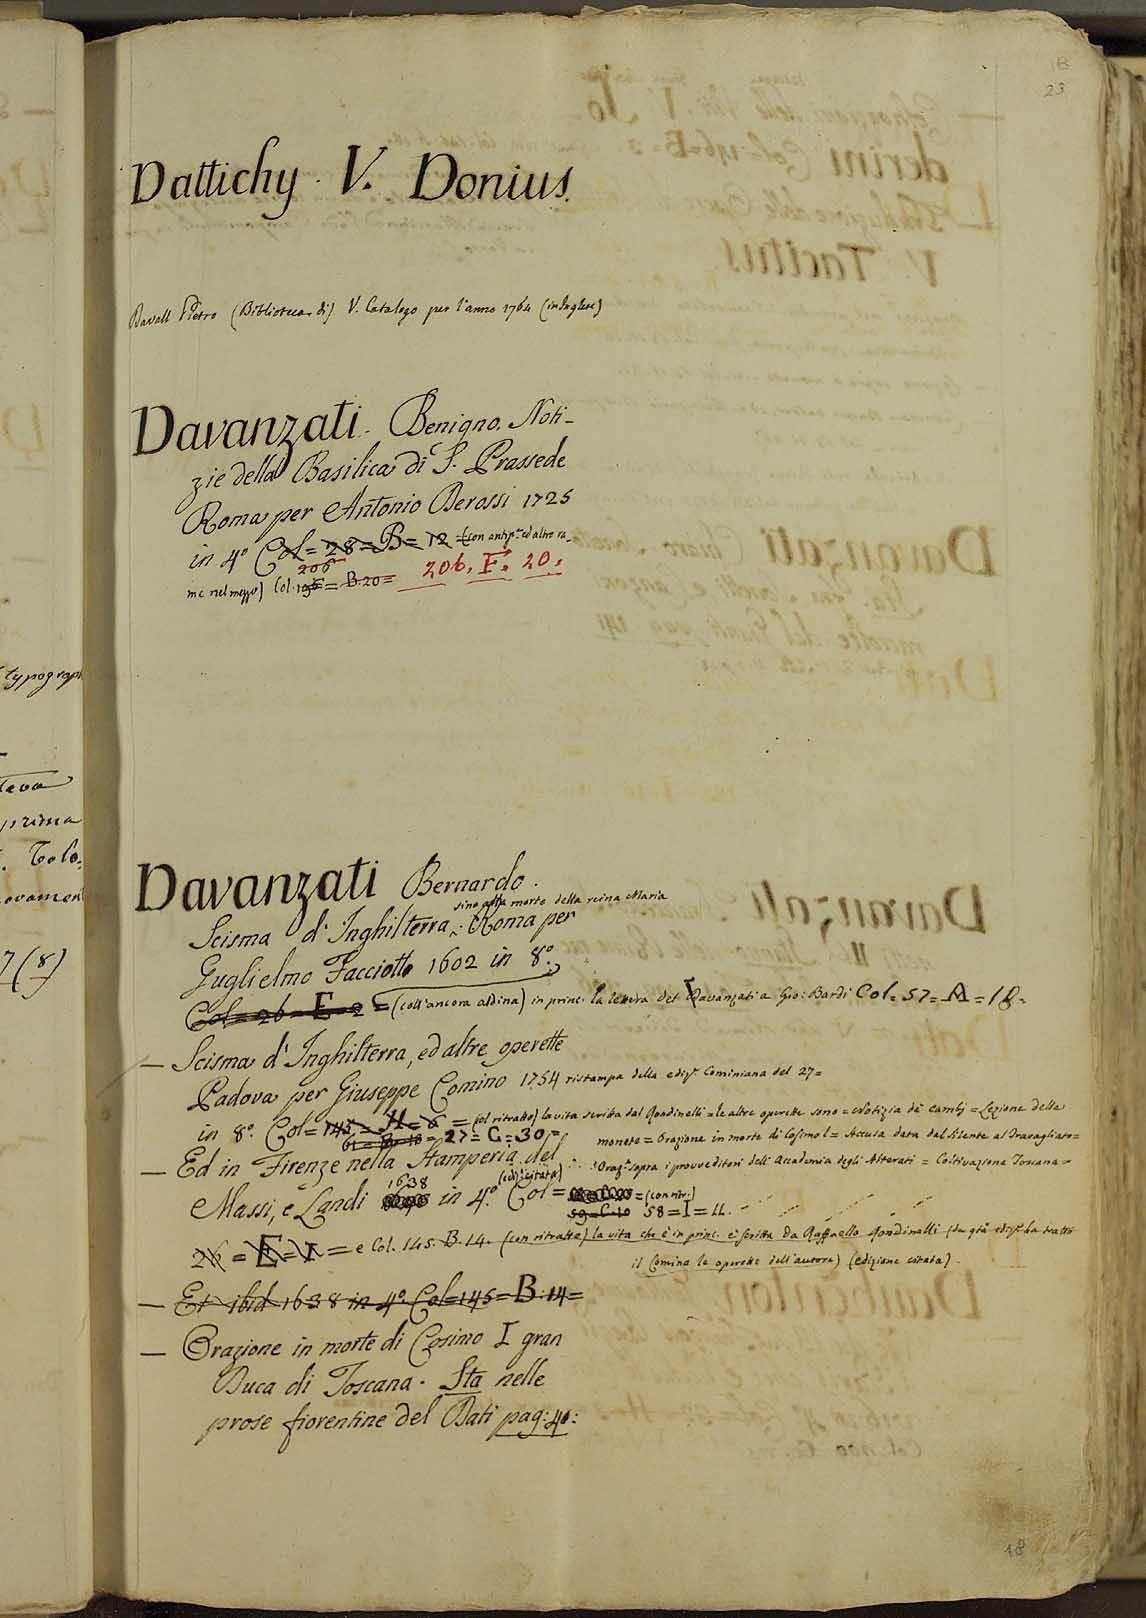 18
23
Dattichy. V. Donius.
Davall Pietro (Biblioteca di) V. Catalogo per l'anno 1764 (in Inglese)
Davanzati. Benigno. Noti-
zie della Basilica di S. Prassede
Roma per Antonio Berossi 1725
in 4º Col= 28= B= 12 = (con antip.ª ed altro ra-
me nel mezzo) Col. 206 = B. 20 = 206. F. 20.
Davanzati Bernardo.
sino alla morte della reina Maria
Scisma d'Inghilterra. Roma per
Guglielmo Facciotto 1602 in 8º.
Col= 26= E= 2 = (coll'ancora aldina) in princ. la lettera del Davanzati a Gio: Bardi Col= 57= A= 18=
— Scisma d'Inghilterra, ed altre operette
Padova per Giuseppe Comino 1754 ristampa della ediz.e Cominiana del 27=
in 8º. Col= 145= H= 6 = (col ritratto) la vita scritta dal Rondinelli = le altre operette sono = Notizia de' cambj = Lezione delle
61= B= 18= 27= C= 30= monete = Orazione in morte di Cosimo I = Accusa data dal Silente al Travagliato=
— Ed in Firenze nella Stamperia del = Oraz.e sopra i provveditori dell'Accademia degli Alterati = Coltivazione Toscana=
1638 (ediz. citata)
Massi, e Landi in 4º. Col= = (con ritr.)
59= C. 10 58= I= 11.
26= E= = e Col. 145. B. 14. (con ritratto) la vita che è in princ. è scritta da Raffaello Rondinelli (da q.ta ediz.e ha tratto
il Comino le operette dell'autore) (edizione citata)
— Et ibid 1638 in 4º. Col=145= B. 14=
— Orazione in morte di Cosimo I gran
Duca di Toscana. Sta nelle
prose fiorentine del Dati pag: 41:
18
typograph
prima
7 (8)